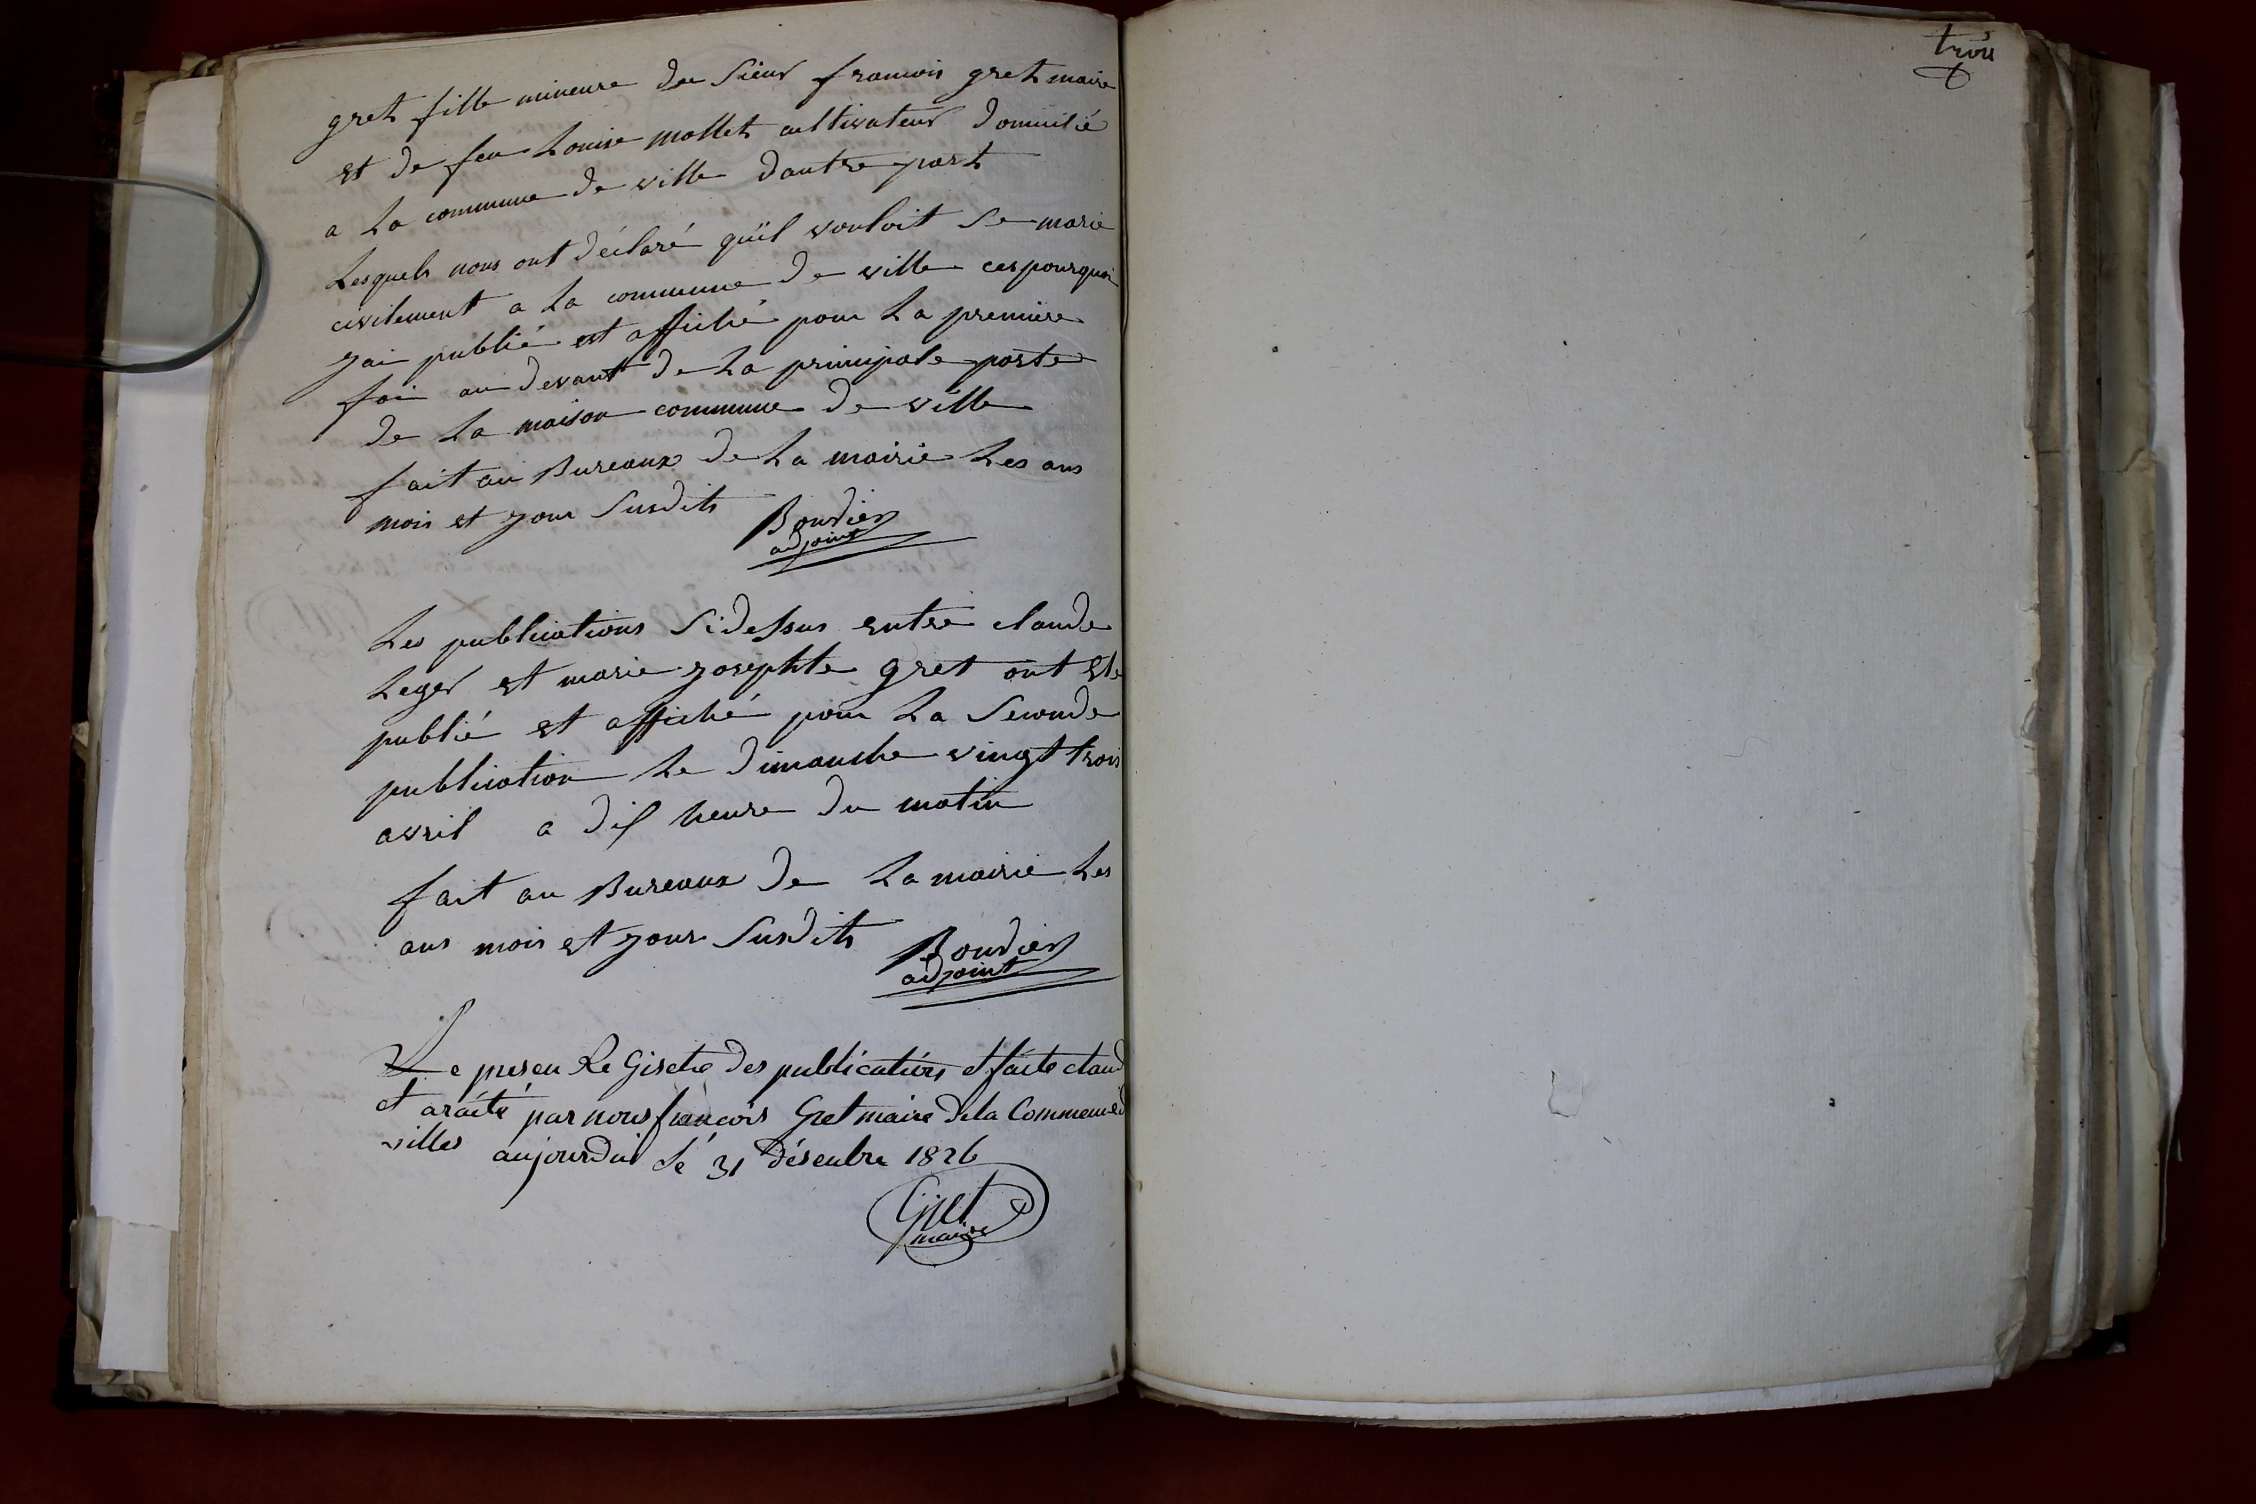 gret fille mineure de Sieur francois gret maire
et de feu Louise mollet cultivateur domicilié
a La commune de ville dautre part
Lesquels nous ont déclaré quil vouloit Se marié
civilement a La commune de ville cespourquoi
jai publié est affiché pour La premiere
foi au devant de La principale porte
de La maison commune de ville
fait au Bureaux de La mairie Les ans
mois et jour Susdits
Bourdier
adjoint
Les publications Sidessus entre claude
Leger et marie josephte gret ont Eté
publié et affiché pour La Seconde
publication Le dimanche vingt trois
avril a dix heure du matin
fait au Bureaux de La mairie Les
ans mois et jour Susdits
Bourdier
adjoint
Le presen Re Gistre des publications et faite
et araité par nous francois Gret maire de la
villes aujourdui Lé 31 désenbre 1826
Gret
maire
trois